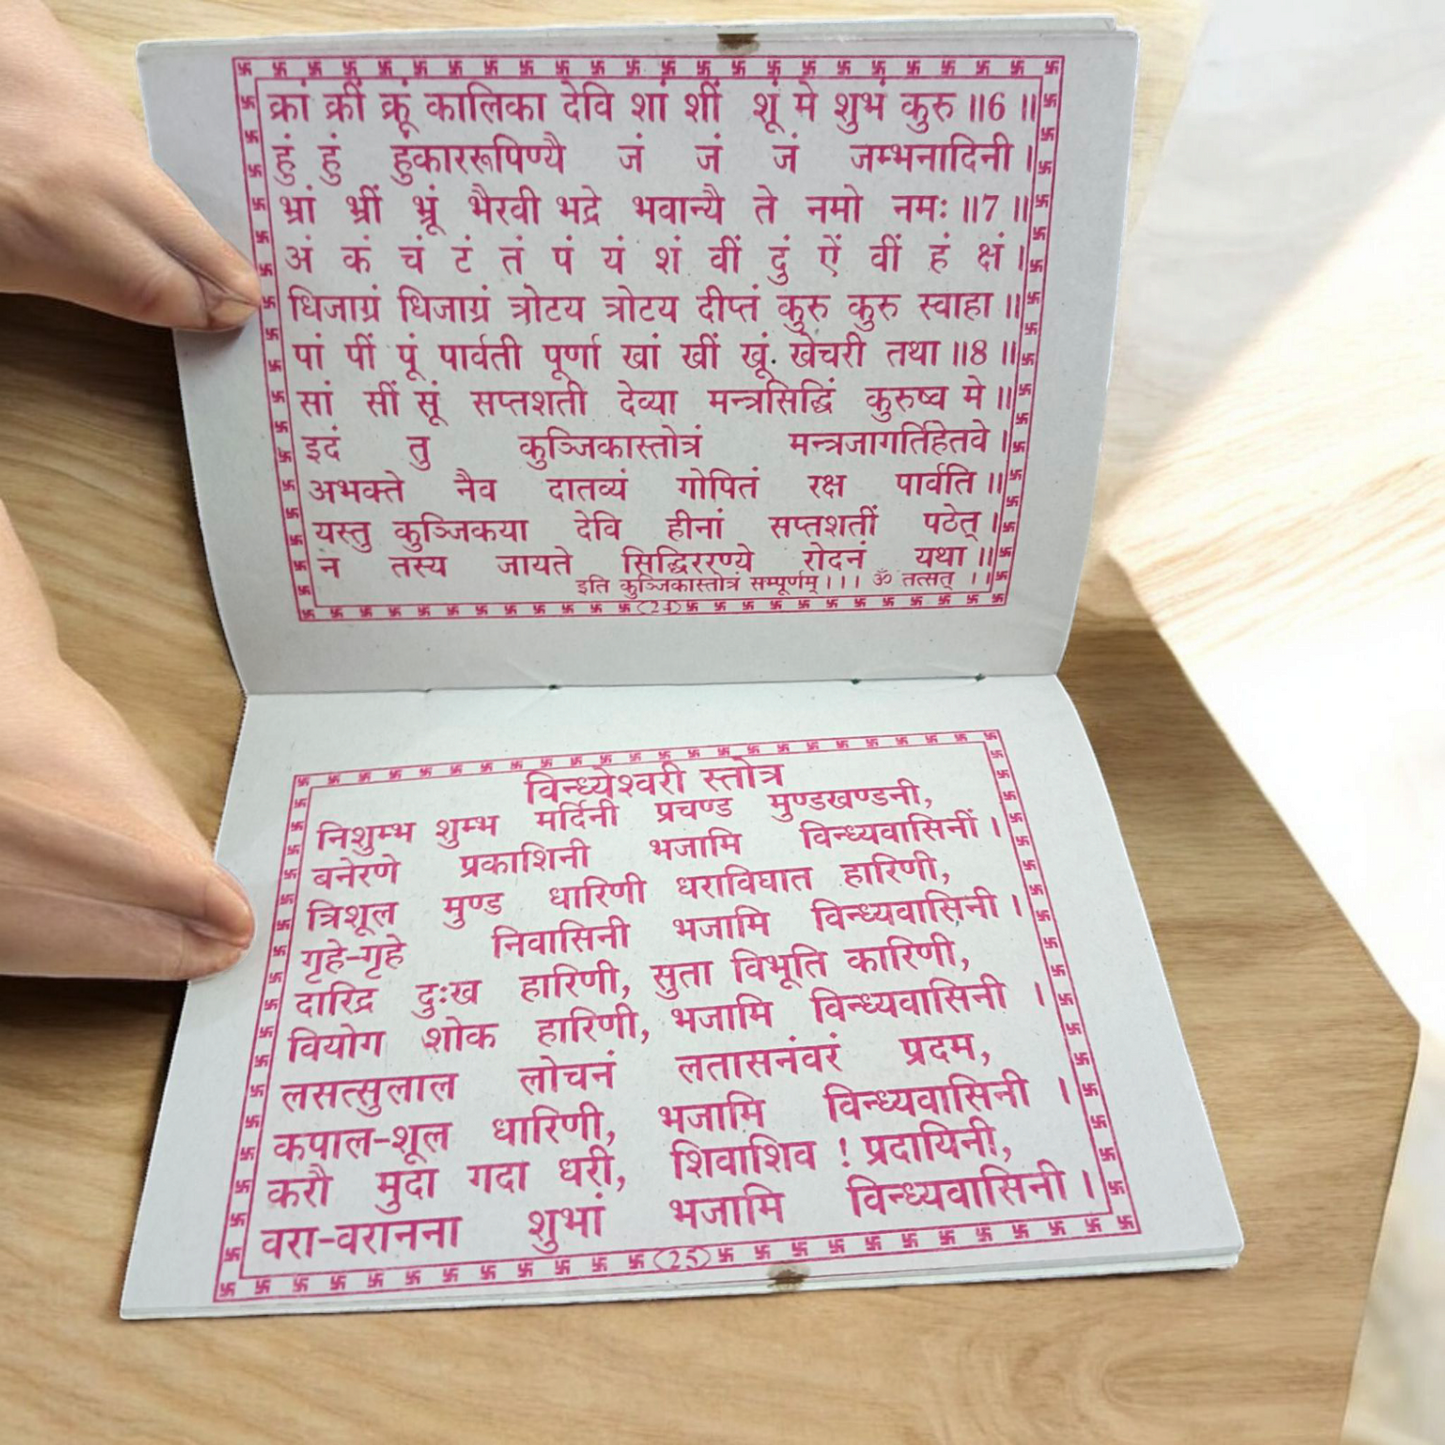 क्रां क्रीं क्रूं कालिका देवि शां शीं शूं मे शुभं कुरु ॥6॥
हुं हुं हुंकाररूपिण्यै जं जं जं जम्भनादिनी ।
भ्रां भ्रीं भ्रूं भैरवी भद्रे भवान्यै ते नमो नमः ॥7॥
अं कं चं टं तं पं यं शं वीं दुं ऐं वीं हं क्षं ।
धिजाग्रं धिजाग्रं त्रोटय त्रोटय दीप्तं कुरु कुरु स्वाहा ॥
पां पीं पूं पार्वती पूर्णा खां खीं खूं. खेचरी तथा ॥8॥
सां सीं सूं सप्तशती देव्या मन्त्रसिद्धिं कुरुष्व मे ॥
इदं तु कुञ्जिकास्तोत्रं मन्त्रजागर्तिहेतवे ।
अभक्ते नैव दातव्यं गोपितं रक्ष पार्वति ॥
यस्तु कुञ्जिकया देवि हीनां सप्तशतीं पठेत् ।
न तस्य जायते सिद्धिररण्ये रोदनं यथा ॥
इति कुञ्जिकास्तोत्रं सम्पूर्णम् ।।। ॐ तत्सत् ।।
(24)
विन्ध्येश्वरी स्तोत्र
निशुम्भ शुम्भ मर्दिनी प्रचण्ड मुण्डखण्डनी,
बनेरणे प्रकाशिनी भजामि विन्ध्यवासिनीं ।
त्रिशूल मुण्ड धारिणी धराविघात हारिणी,
गृहे-गृहे निवासिनी भजामि विन्ध्यवासिनी ।
दारिद्र दुःख हारिणी, सुता विभूति कारिणी,
वियोग शोक हारिणी, भजामि विन्ध्यवासिनी ।
लसत्सुलाल लोचनं लतासनंवरं प्रदम,
कपाल-शूल धारिणी, भजामि विन्ध्यवासिनी ।
करौ मुदा गदा धरी, शिवाशिव ! प्रदायिनी,
वरा-वरानना शुभां भजामि विन्ध्यवासिनी ।
(25)